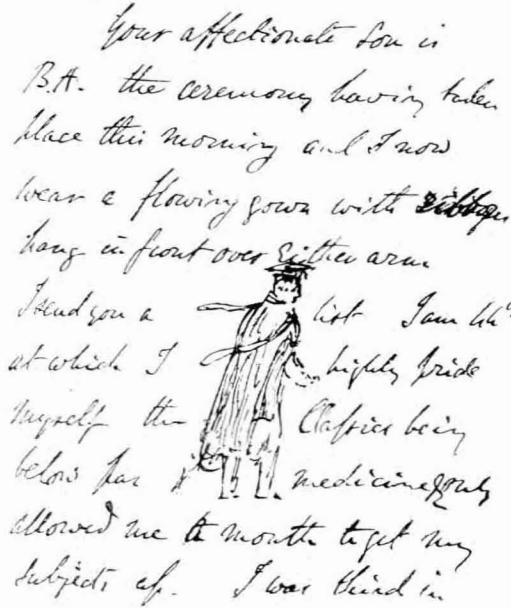 Your affectionate son is
B.A. the ceremony having taken
place this morning and I now
wear a flowing gown with
hang in front over either arm
I send you a list I am
at which I highly pride
myself the Classics being
below par medicine only
allowed me a month to get my
subjects up. I was third in